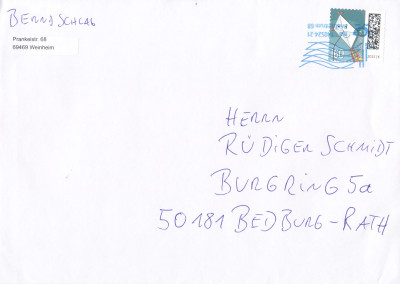 BERND SCHLAG
Prankelstr. 68
69469 Weinheim
HERRN
RÜDIGER SCHMIDT
BURGRING 5a
50181 BEDBURG-RATH